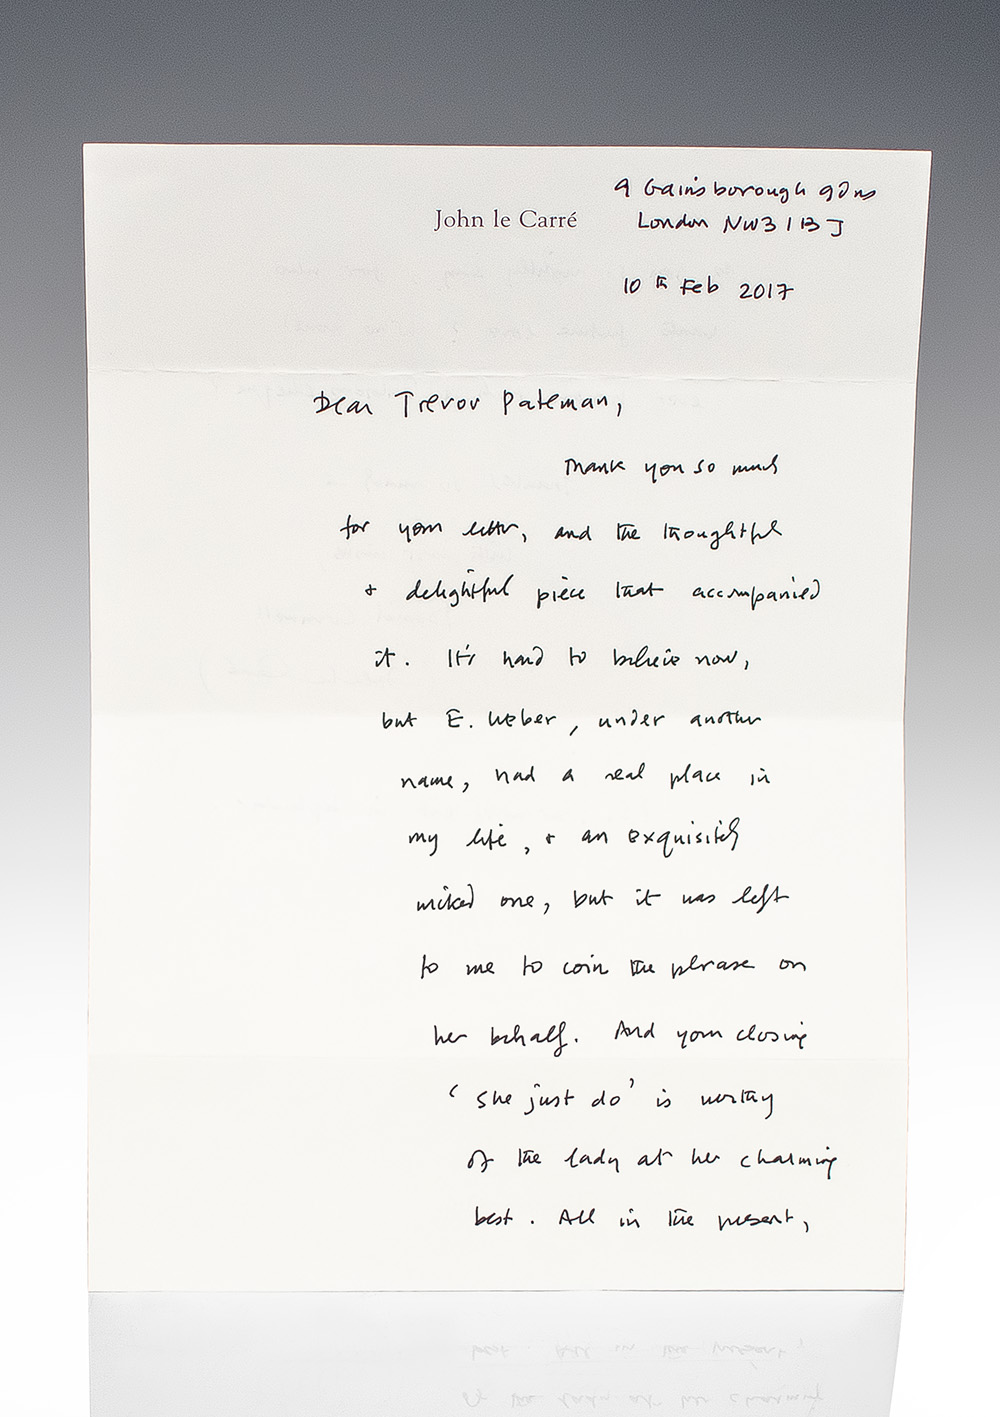 9 Gainsborough gdns
John le Carré
London NW3 1BJ
10th Feb 2017
Dear Trevor Pateman,
Thank you so much
for your letter, and the thoughtful
+ delightful piece that accompanied
it. It's hard to believe now,
but E. Weber, under another
name, had a real place in
my life, + an exquisitely
wicked one, but it was left
to me to coin the phrase on
her behalf. And your closing
'she just do' is worthy
of the lady at her charming
best. All in the present,